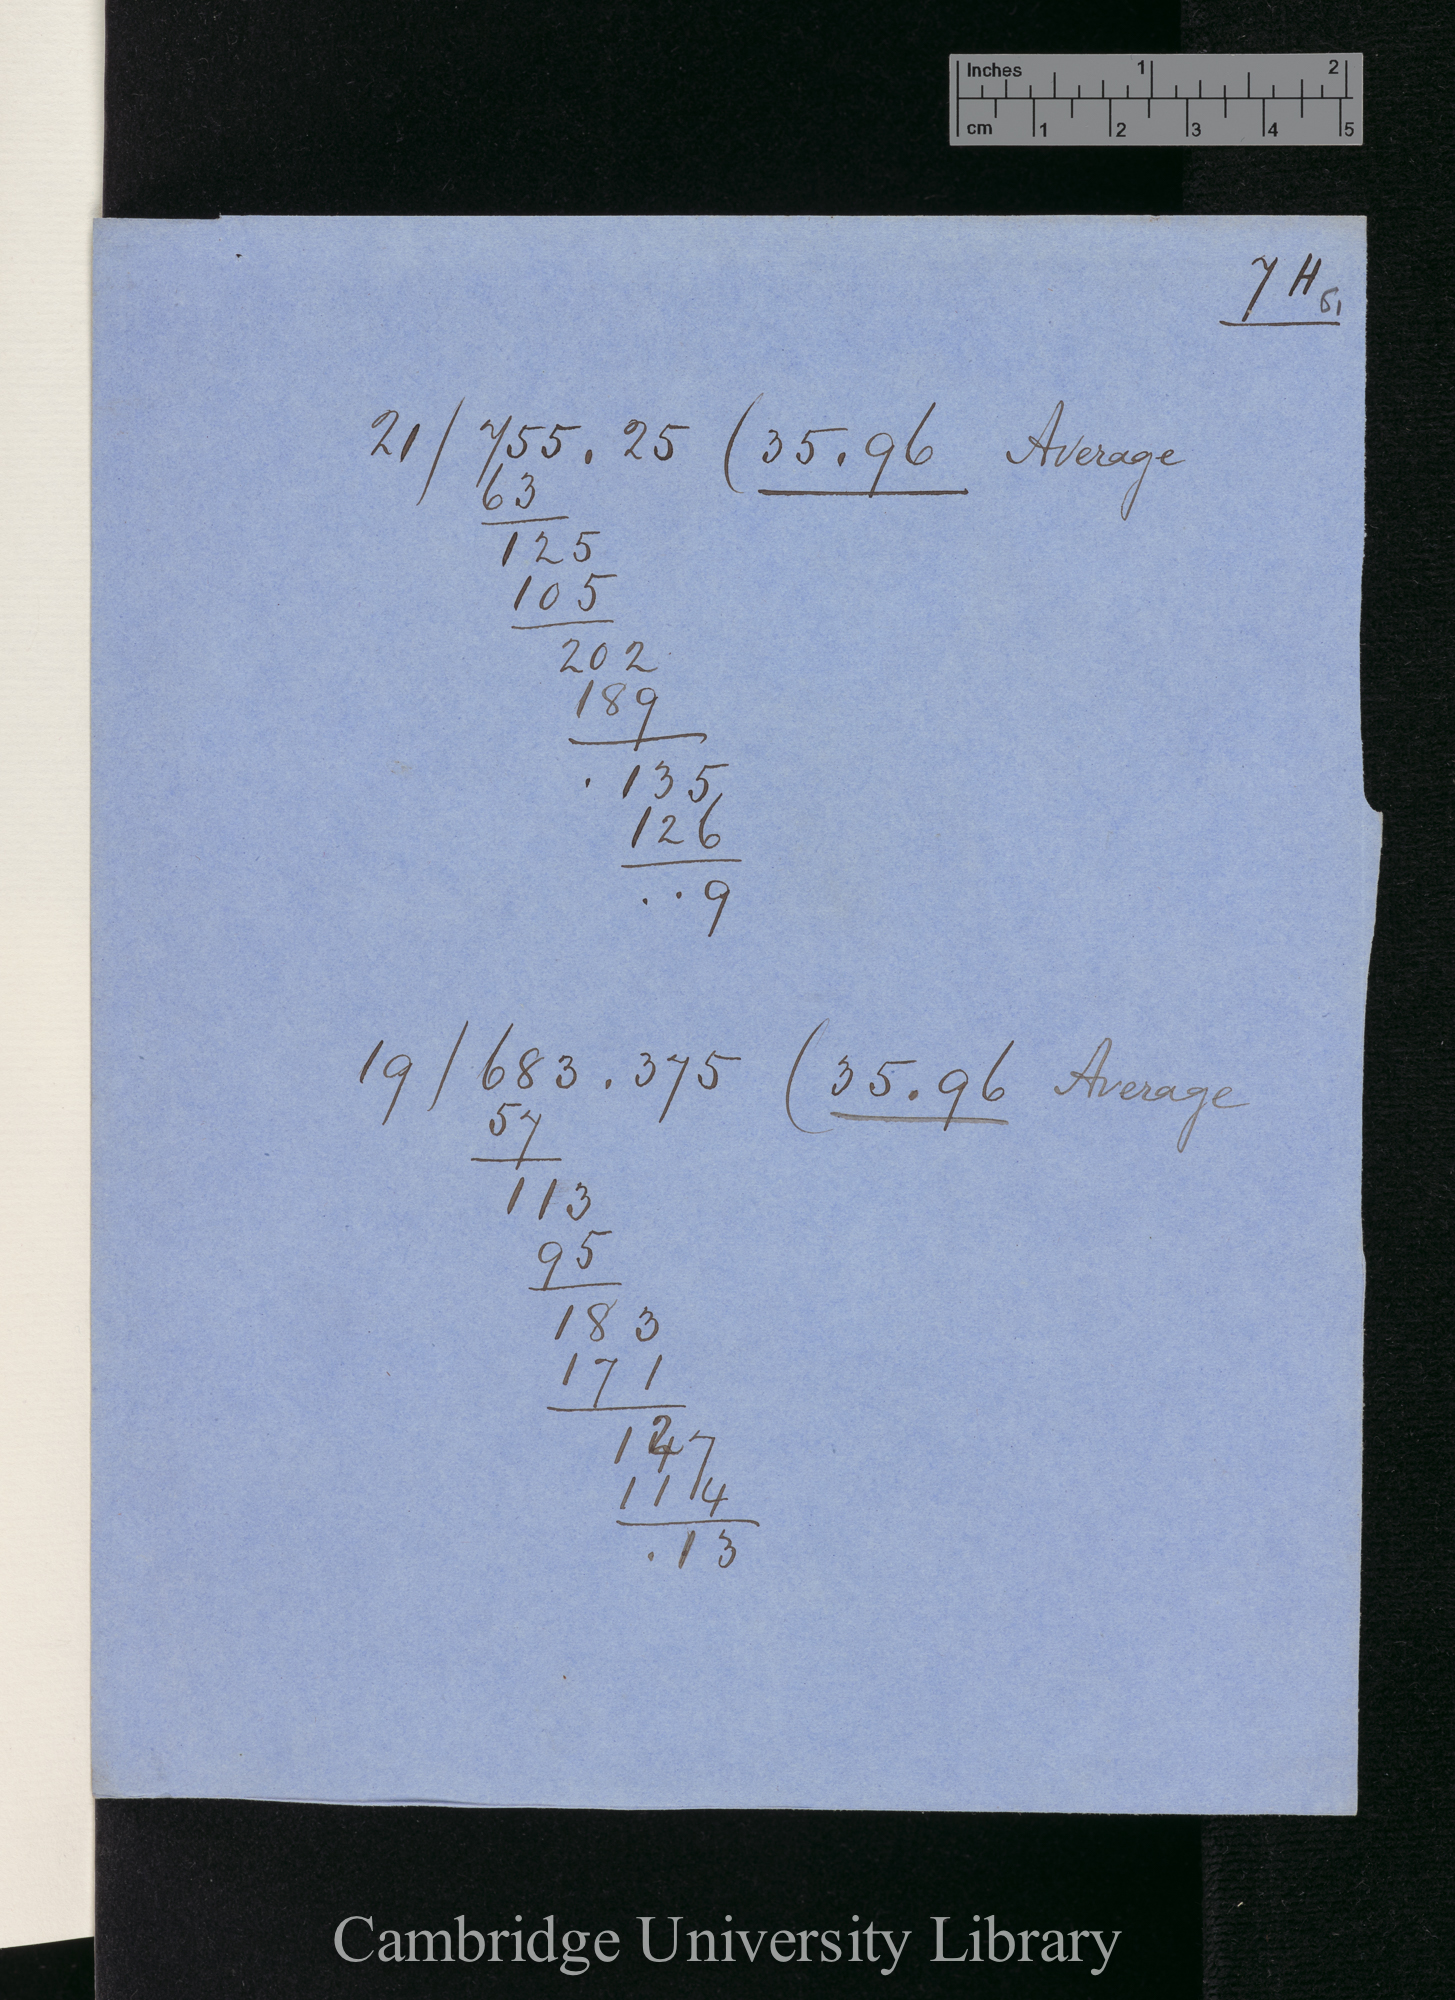 Inches 1 2
cm 1 2 3 4 5
7 H
51
21/ 755.25 (35.96 Average
63
125
105
202
189
.135
126
..9
19/683.375 (35.96 Average
57
113
95
183
171
127
114
.13
Cambridge University Library